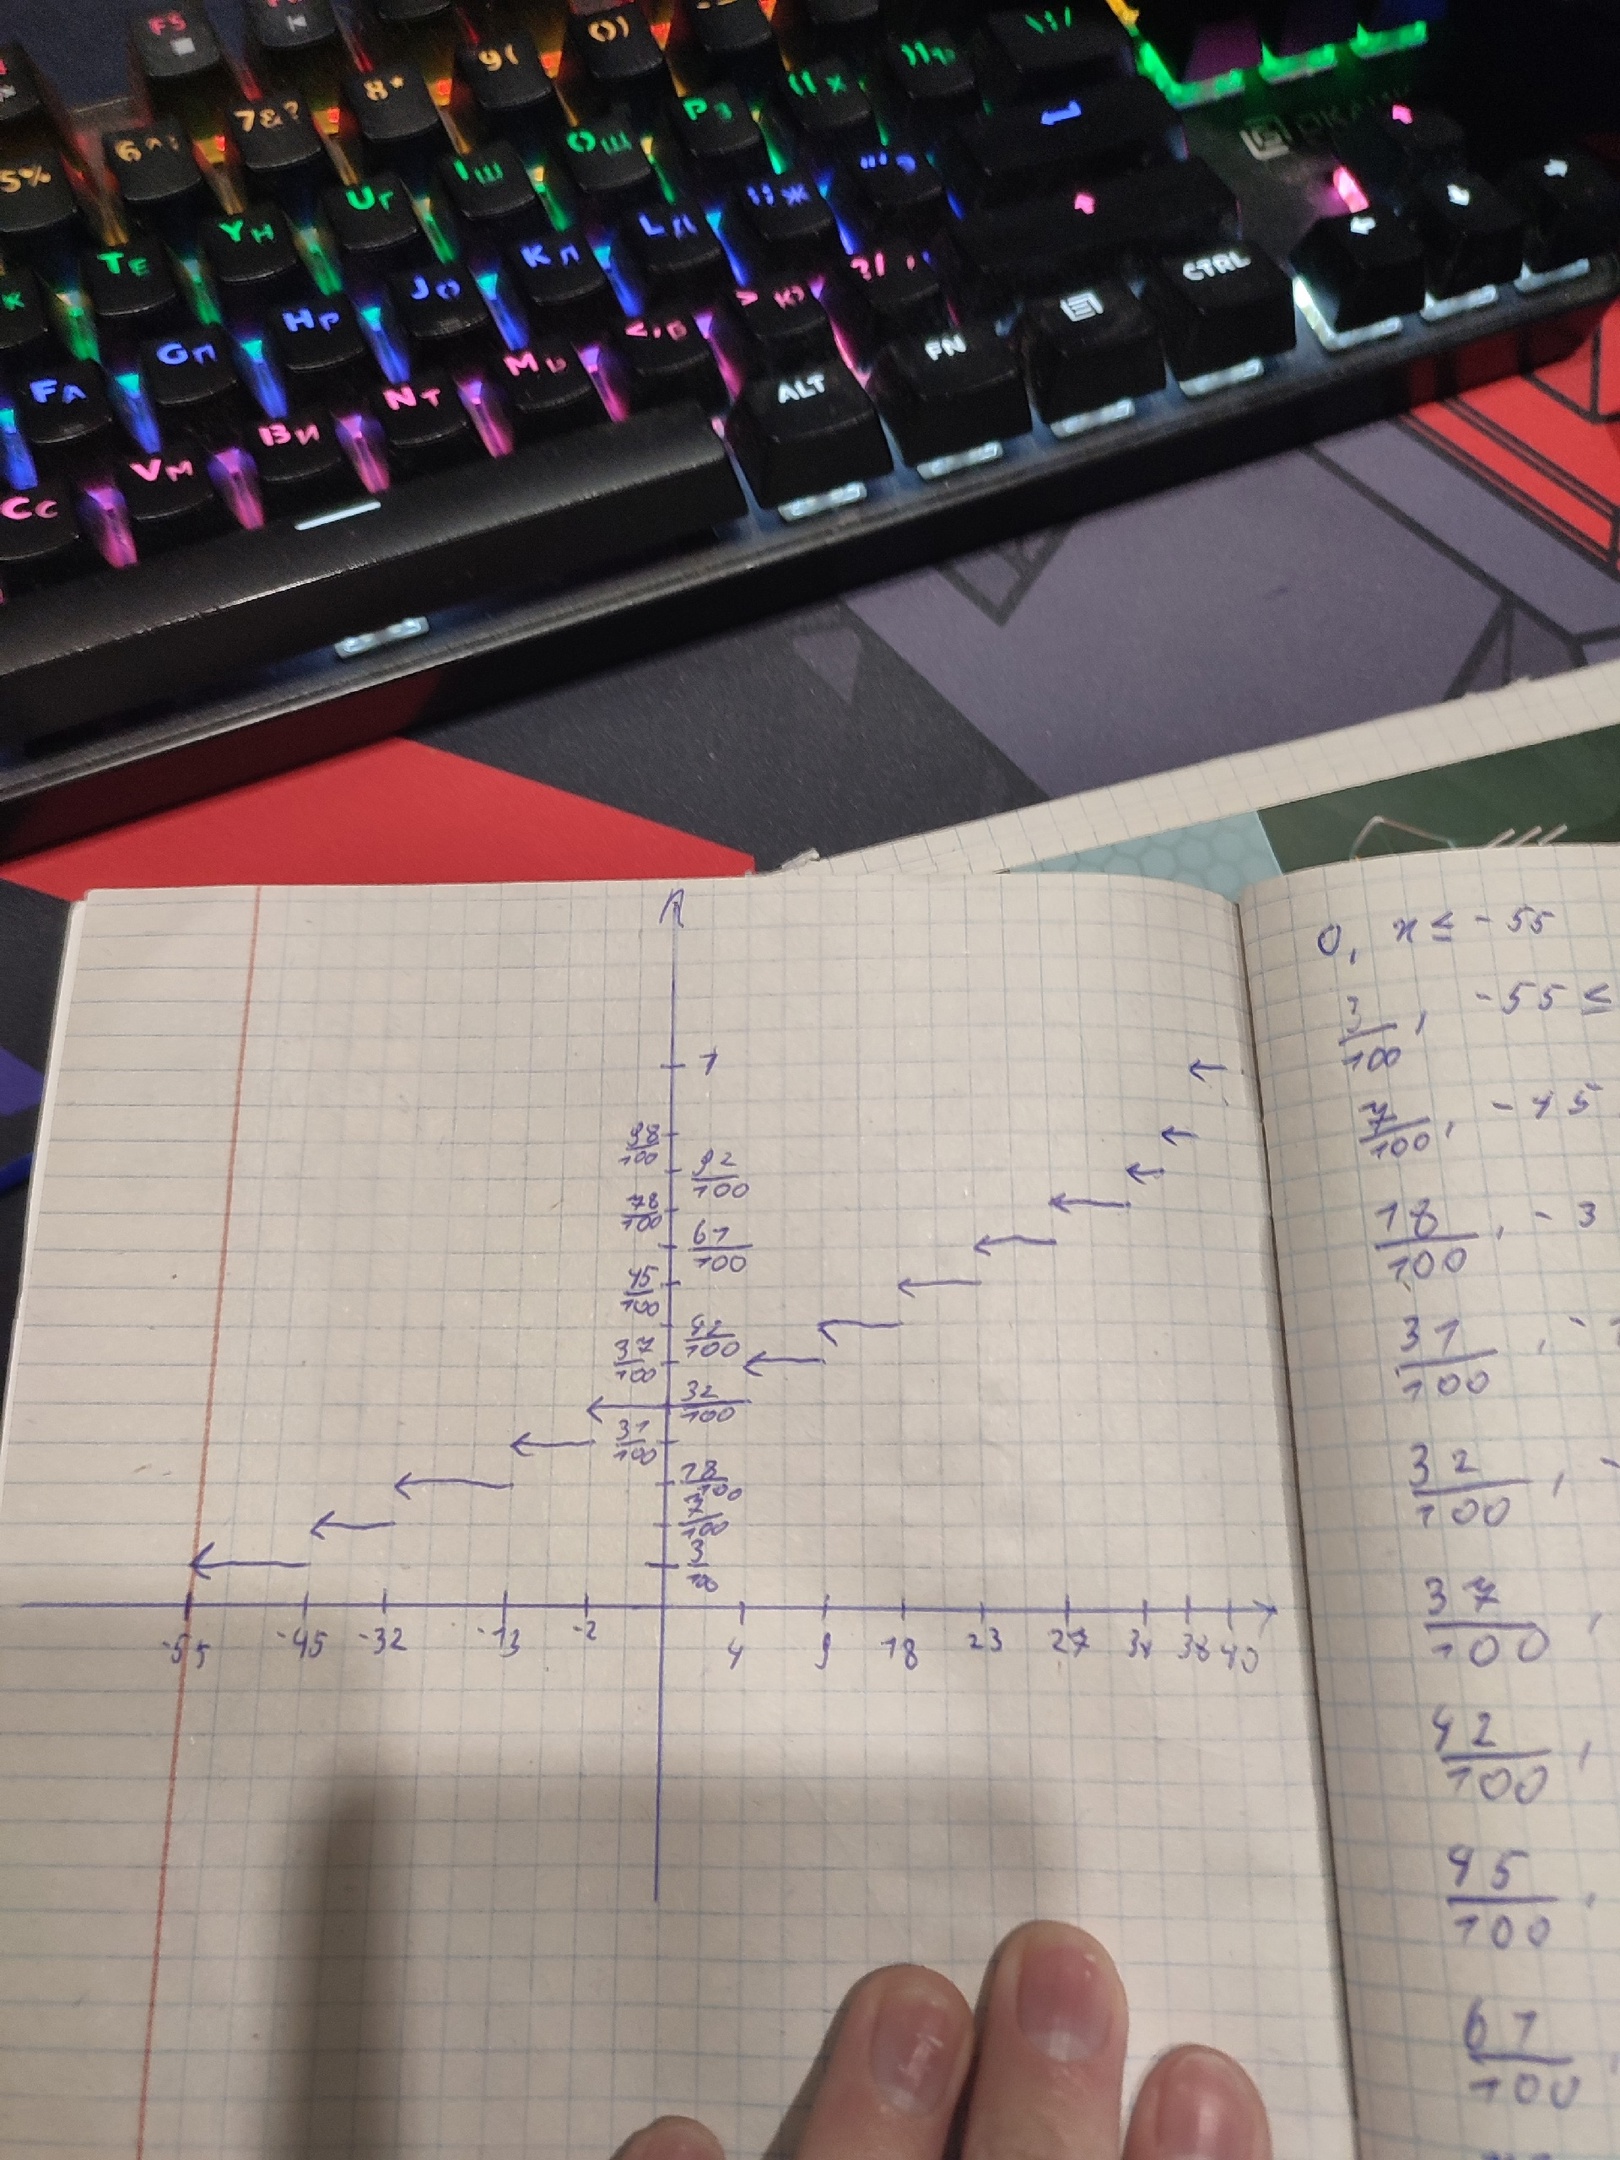 F5
5%
6^:
7&?
8*
9(
0)
K
TE
YН
UГ
IШ
OЩ
PЗ
FА
GП
HР
JО
KЛ
LД
:;Ж
"'Э
CС
VМ
BИ
NТ
MЬ
<,Б
>.Ю
?/
ALT
FN
CTRL
1
98/100
92/100
78/100
61/100
45/100
42/100
37/100
32/100
31/100
18/100
7/100
3/100
-55 -45 -32 -13 -2 4 9 18 23 27 34 38 40
0, x ≤ -55
3/100, -55 ≤
7/100, -45
18/100, -3
31/100, -1
32/100, -
37/100,
42/100,
45/100,
61/100